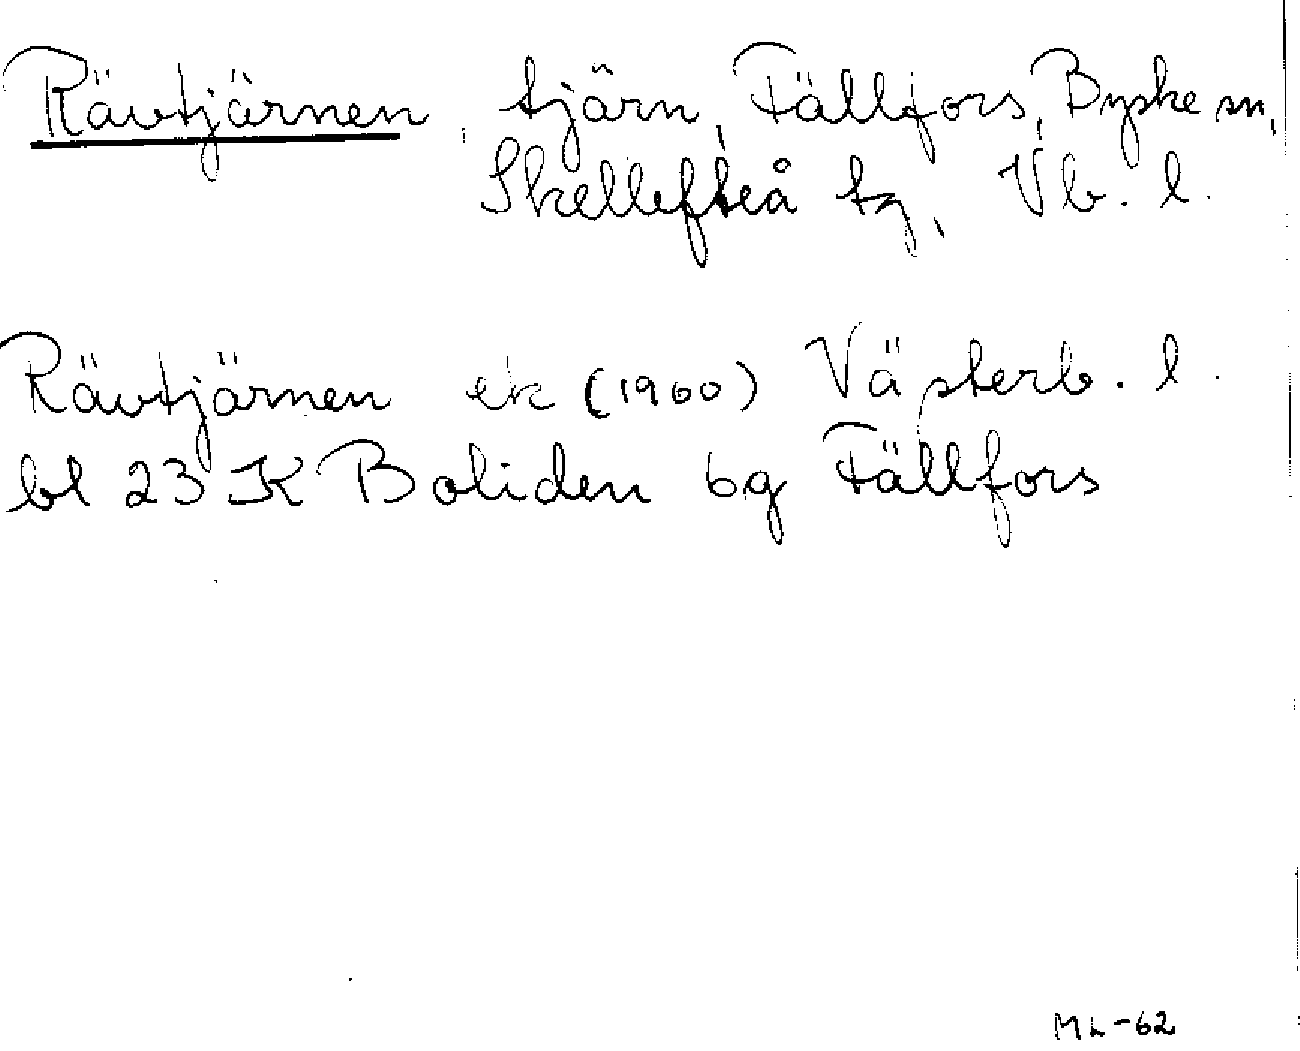 Rävtjärnen, tjärn, Fällfors, Byske sn,
Skellefteå tg, Vb. l.
Rävtjärnen ek (1960) Västerb. l.
bl 23 K Boliden 6g Fällfors
ML-62